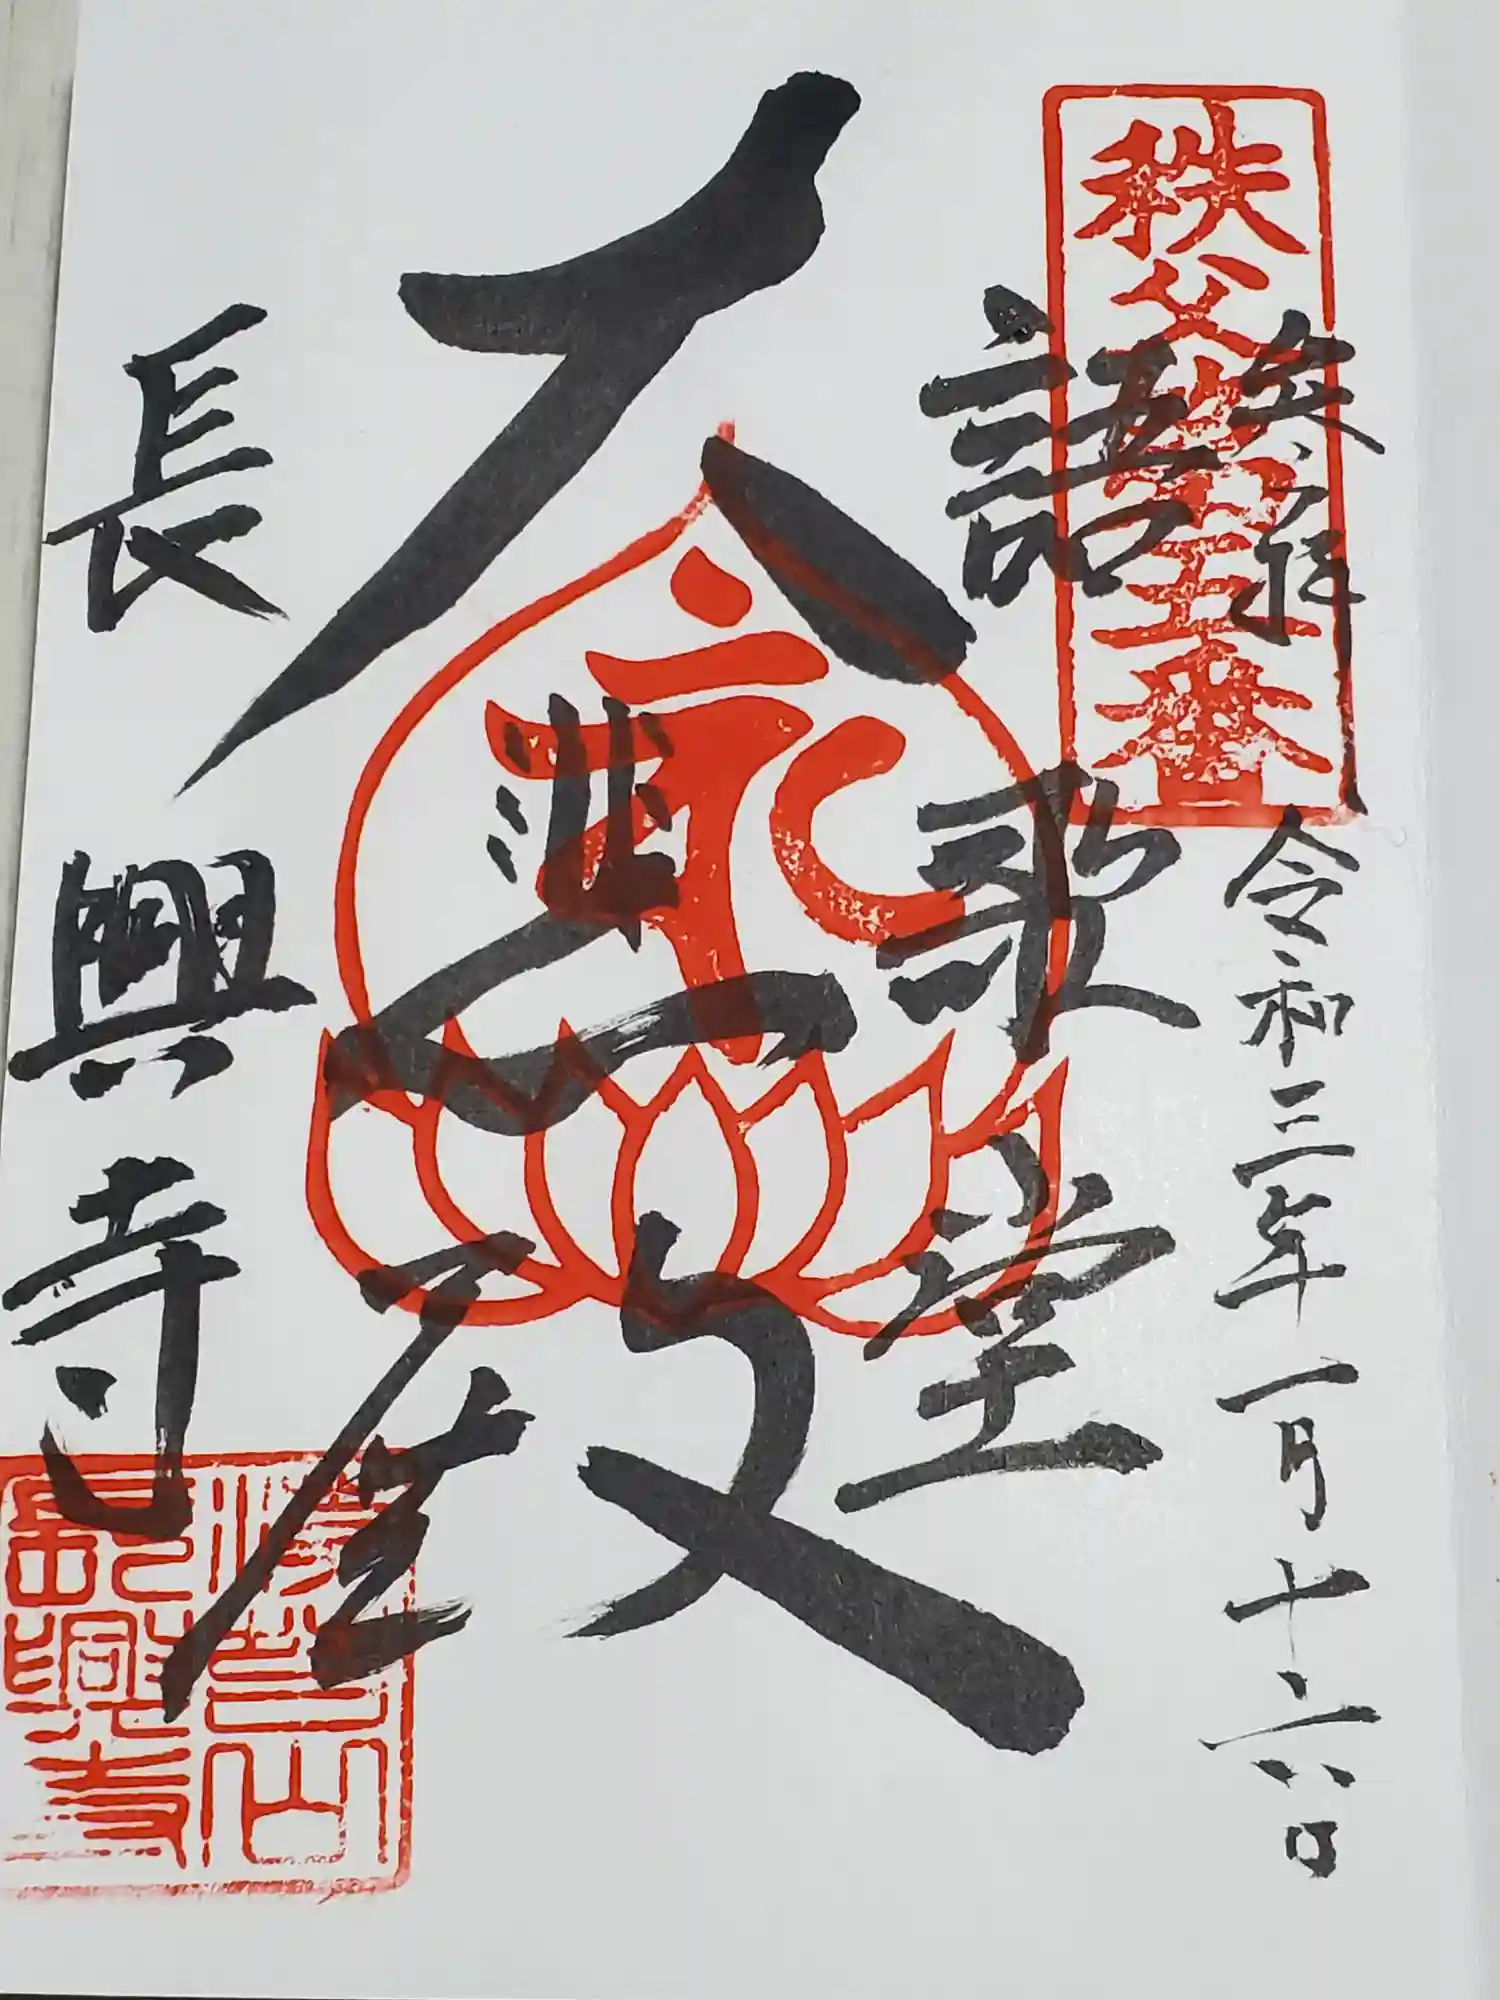 秩父第五番
奉拝
令和三年一月十六日
語歌堂
大悲殿
長興寺
長興寺